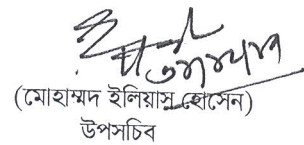 (মোহাম্মদ ইলিয়াস হোসেন)
উপসচিব